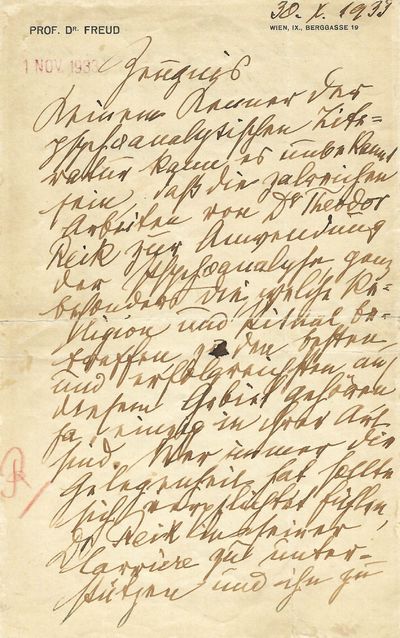 30. X. 1933
PROF. DR. FREUD
WIEN, IX., BERGGASSE 19
1 NOV. 1933
Zeugnis
Keinem Kenner der
psychoanalytischen Lite-
ratur kann es unbekannt
sein, daß die zalreichen
Arbeiten von Dr Theodor
Reik zur Anwendung
der Psychoanalyse ganz
besonders die welche Re-
ligion und Ritual be-
treffen zu den besten
und erfolgreichsten auf
diesem Gebiet gehören
ja einzig in ihrer Art
sind. Wer immer die
Gelegenheit hat sollte
sich verpflichtet fühlen,
Dr Reik in seiner
Karriere zu unter-
stützen und ihn zu
R